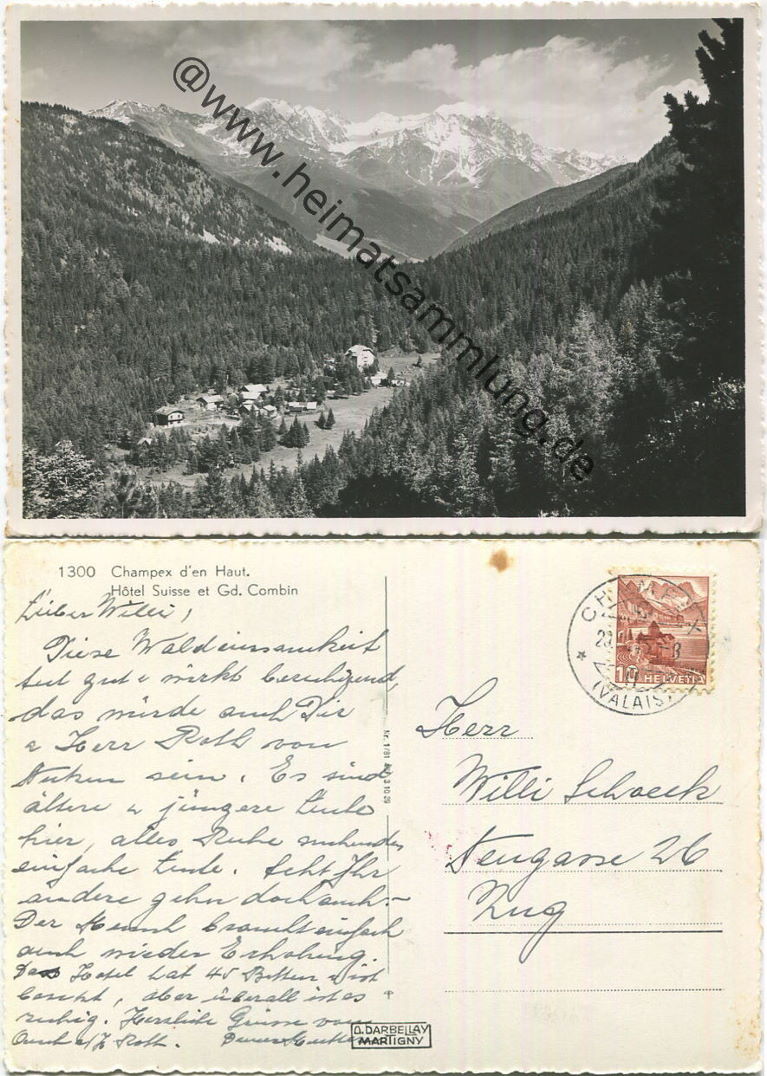 @www.heimatsammlung.de
1300 Champex d'en Haut.
Hôtel Suisse et Gd. Combin
Lieber Willi,
Diese Waldeinsamkeit
tut gut & wirkt beruhigend,
das würde auch Dir
& Herr Roth von
Nutzen sein. Es sind
ältere & jüngere Leute
hier, alles Ruhe suchende,
einfache Leute. Seht Ihr
andere gehn doch auch.-
Der Mensch braucht einfach
auch wieder Erholung.
Das Hotel hat 45 Betten & ist
besetzt, aber überall ist es
ruhig. Herzliche Grüsse von
Roth. Deiner Mutter
D. DARBELLAY
MARTIGNY
CHAMPEX
(VALAIS)
10 HELVETIA
Herr
Willi Schoeck
Neugasse 26
Zug